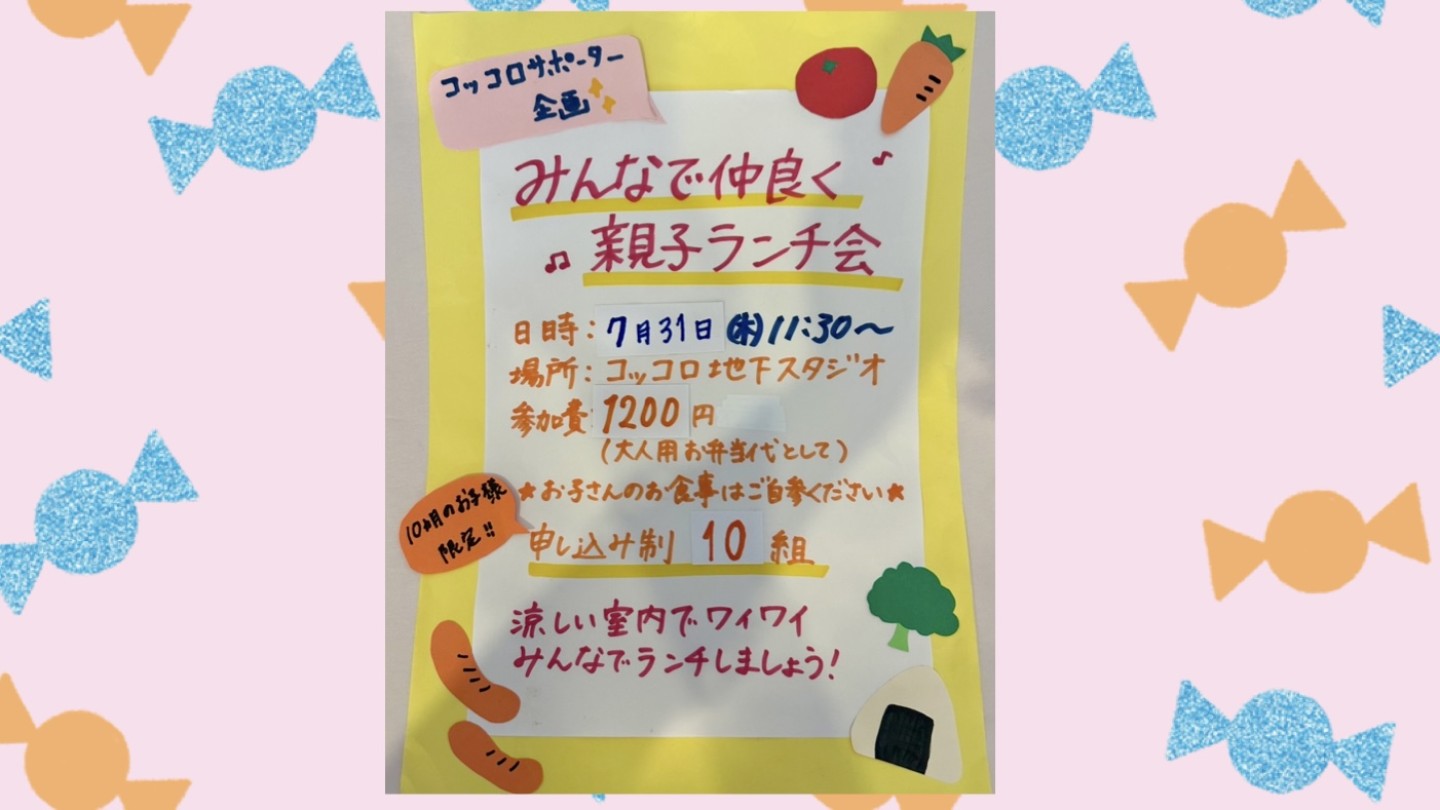 コッコロサポーター
企画
みんなで仲良く
親子ランチ会
日時:7月31日(木)11:30〜
場所:コッコロ地下スタジオ
参加費:1200円
(大人用お弁当代として)
★お子さんのお食事はご自参ください★
10ヶ月のお子様
限定!!
申し込み制 10組
涼しい室内でワイワイ
みんなでランチしましょう!